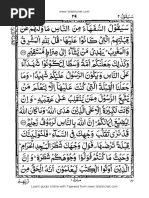 سَيَقُولُ السُّفَهَآءُ مِنَ النَّاسِ مَا وَلّٰىهُمْ عَنْ
قِبْلَتِهِمُ الَّتِيْ كَانُوْا عَلَيْهَا قُلْ لِّلّٰهِ الْمَشْرِقُ
وَالْمَغْرِبُ يَهْدِيْ مَنْ يَّشَآءُ اِلٰى صِرَاطٍ مُّسْتَقِيْمٍ
وَكَذٰلِكَ جَعَلْنٰكُمْ اُمَّةً وَّسَطًا لِّتَكُوْنُوْا شُهَدَآءَ
عَلَى النَّاسِ وَيَكُوْنَ الرَّسُوْلُ عَلَيْكُمْ شَهِيْدًا وَمَا
جَعَلْنَا الْقِبْلَةَ الَّتِيْ كُنْتَ عَلَيْهَا اِلَّا لِنَعْلَمَ مَنْ يَّتَّبِعُ
الرَّسُوْلَ مِمَّنْ يَّنْقَلِبُ عَلٰى عَقِبَيْهِ وَاِنْ كَانَتْ
لَكَبِيْرَةً اِلَّا عَلَى الَّذِيْنَ هَدَى اللّٰهُ وَمَا كَانَ اللّٰهُ
لِيُضِيْعَ اِيْمَانَكُمْ اِنَّ اللّٰهَ بِالنَّاسِ لَرَءُوْفٌ رَّحِيْمٌ
قَدْ نَرٰى تَقَلُّبَ وَجْهِكَ فِي السَّمَآءِ فَلَنُوَلِّيَنَّكَ
قِبْلَةً تَرْضٰىهَا فَوَلِّ وَجْهَكَ شَطْرَ الْمَسْجِدِ
الْحَرَامِ وَحَيْثُ مَا كُنْتُمْ فَوَلُّوْا وُجُوْهَكُمْ شَطْرَهٗ وَاِنَّ
الَّذِيْنَ اُوْتُوا الْكِتٰبَ لَيَعْلَمُوْنَ اَنَّهُ الْحَقُّ مِنْ